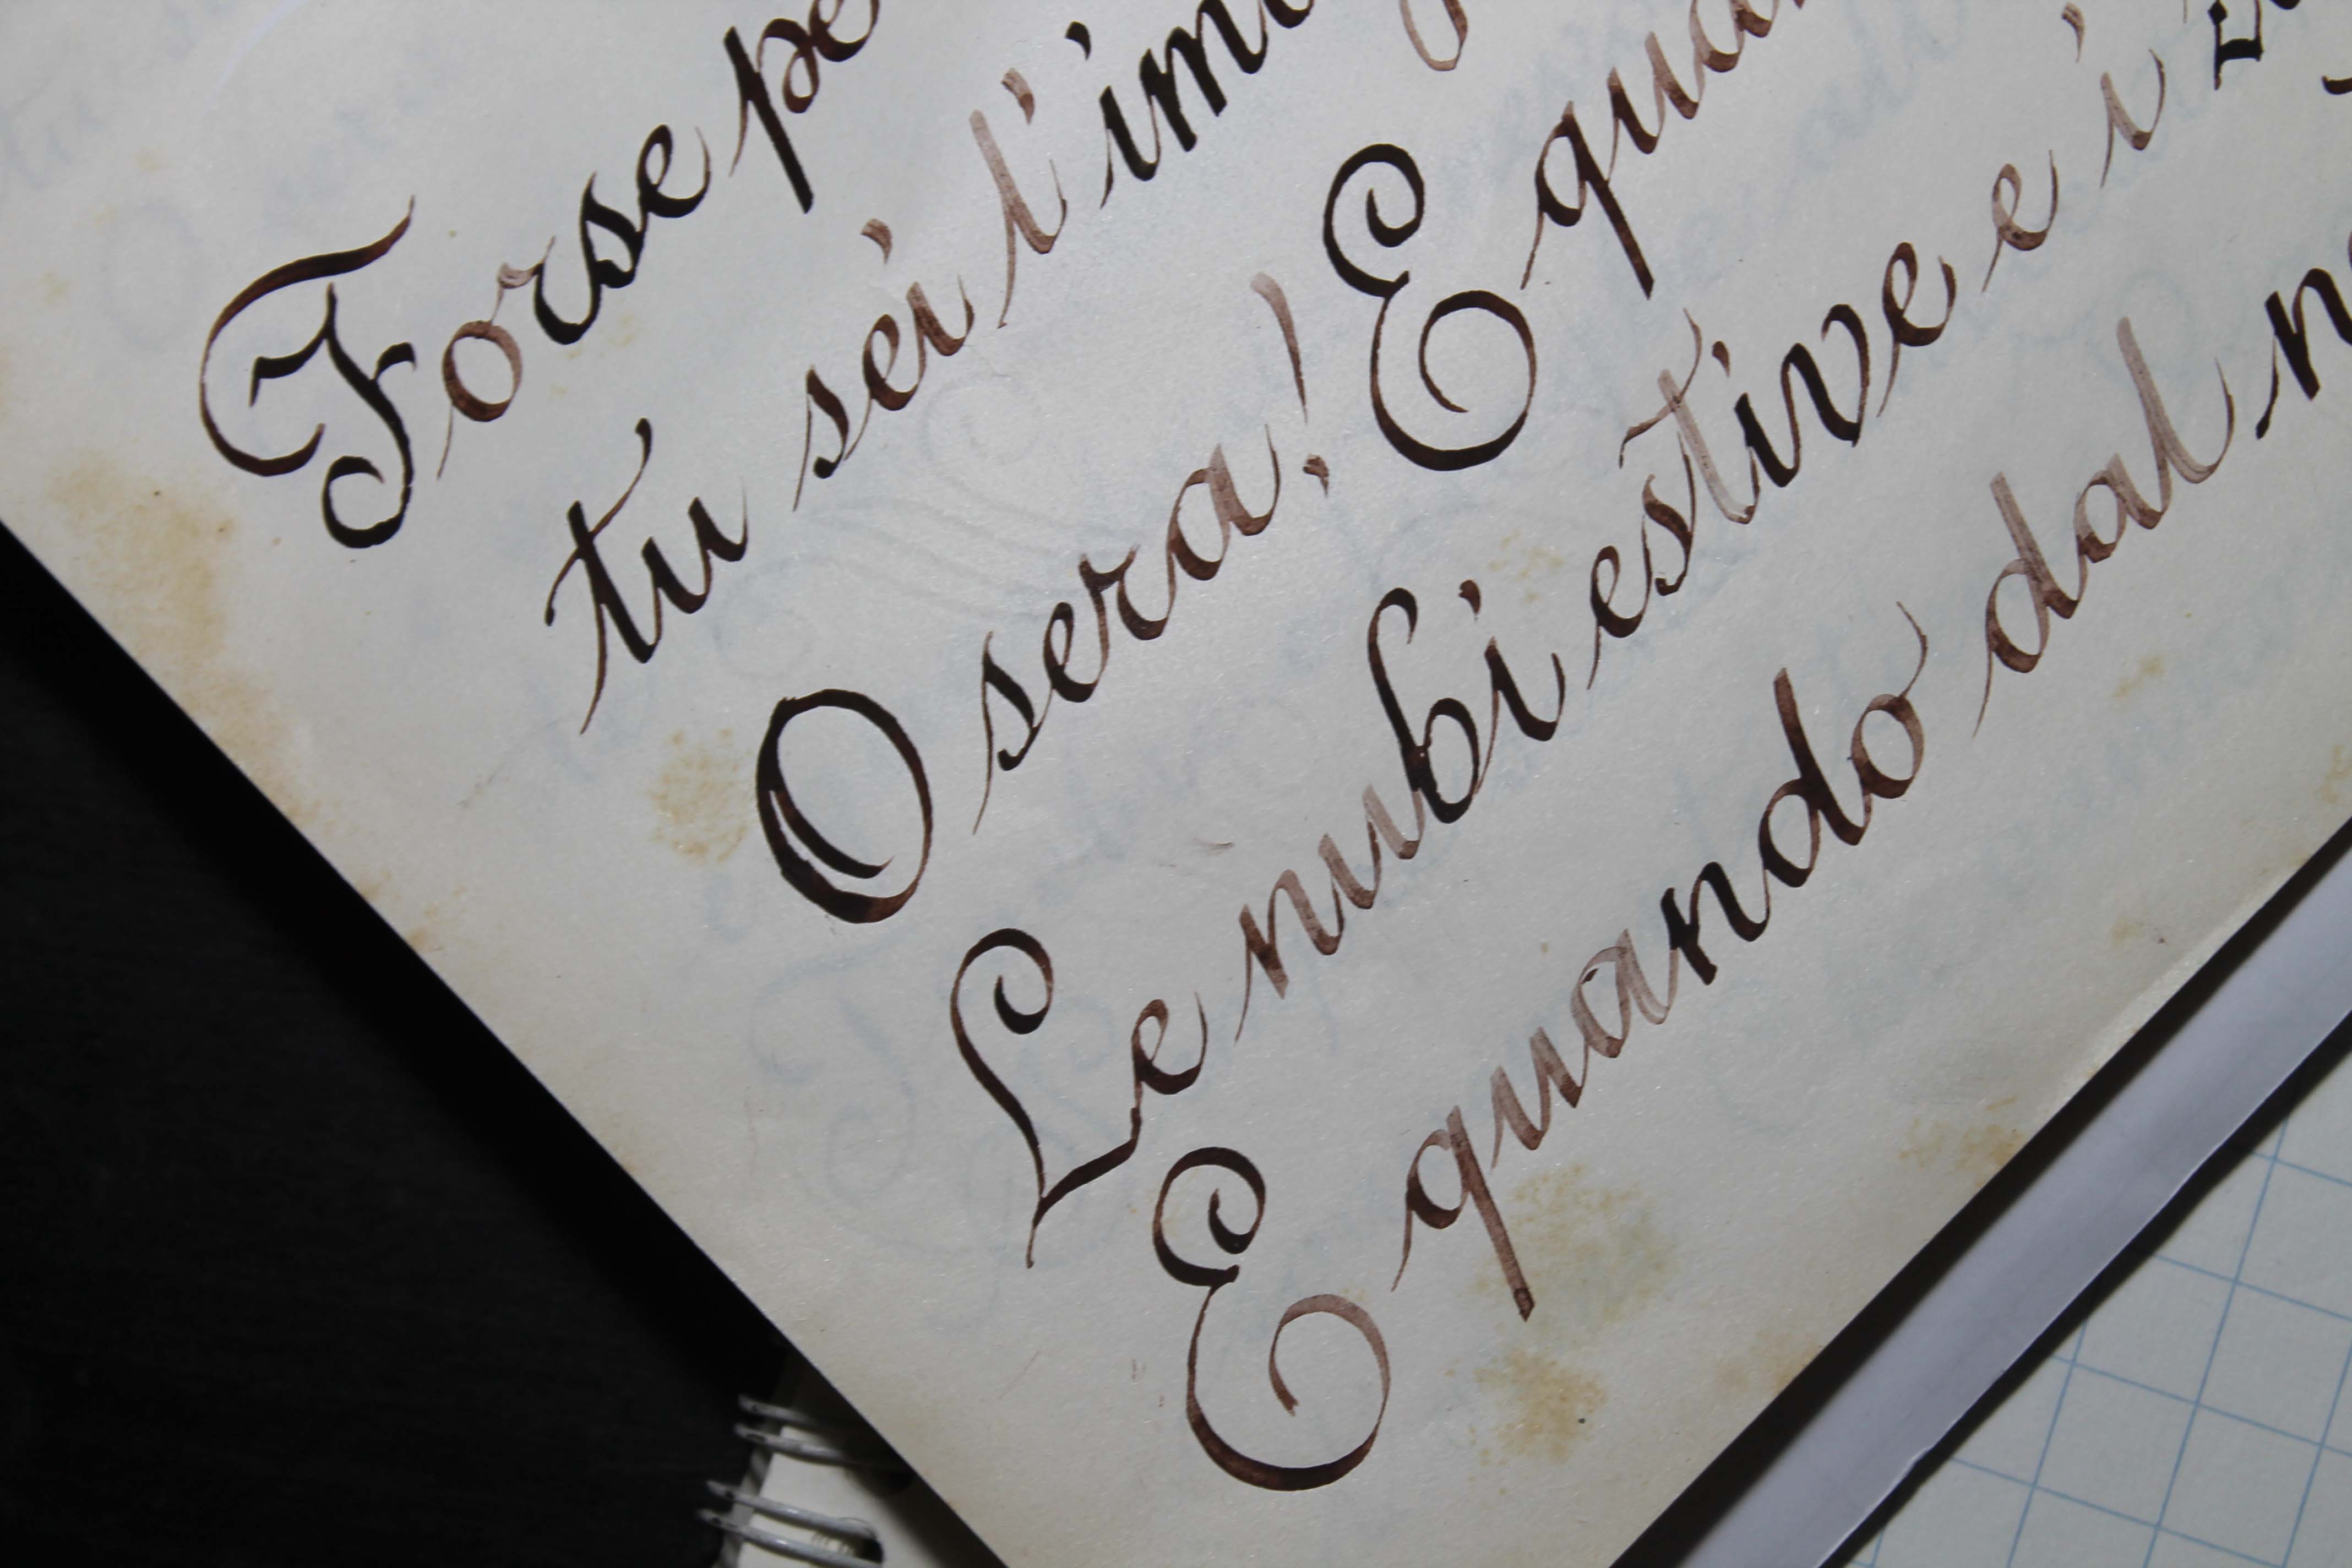 Forse pe
tu sei l'im
O sera! E qua
Le nubi estive e i z
E quando dal n